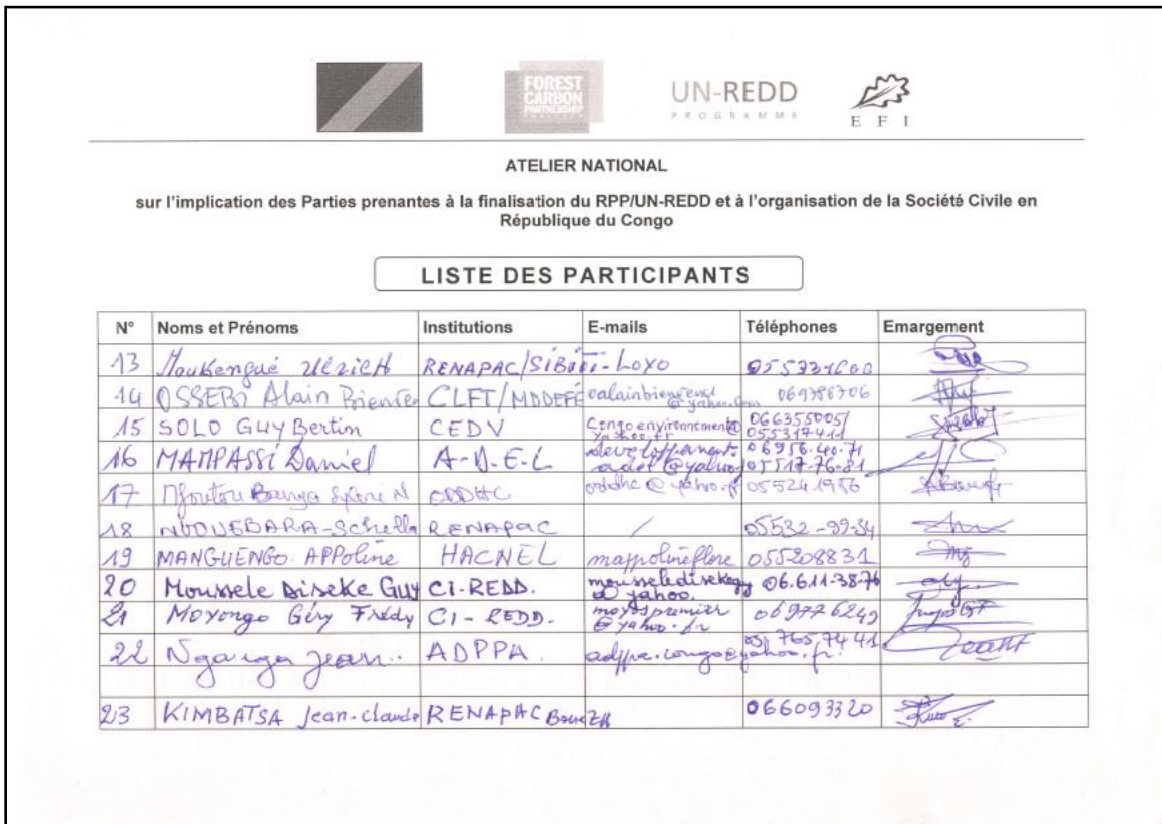 FOREST
CARBON
PARTNERSHIP
UN-REDD
PROGRAMME
EFI
ATELIER NATIONAL
sur l'implication des Parties prenantes à la finalisation du RPP/UN-REDD et à l'organisation de la Société Civile en
République du Congo
LISTE DES PARTICIPANTS
N° Noms et Prénoms Institutions E-mails Téléphones Emargement
13 Moukengué Ulrich RENAPAC/SIBITI-LOYO
14 OSSEBI Alain CLFT/MDDEFE 069386306
15 SOLO GUY Bertin CEDV Congoenvironnement@ 066355005/
yahoo.fr 055317411
16 MAMPASSI Daniel A-D.E.L developpement. 06956.40.71
adel@yahoo 05517-76-81
17 ODDHC oddhc@yahoo.fr 055241986
18 NDOUEBARA-Schella RENAPAC / 05532-99-34
19 MANGUENGO APPoline HACNEL mappolineflore 055208831
20 Moussele Diseke Guy CI-REDD. mousseledisekeguy 06.611-38-76
@yahoo.
21 Moyongo Géry Frédy CI-REDD. moyospremier 069776249
@yahoo.fr
22 Nganga Jean. ADPPA. adppa.congo@yahoo.fr. 05 765 74 41
23 KIMBATSA Jean-claude RENAPAC 066093320